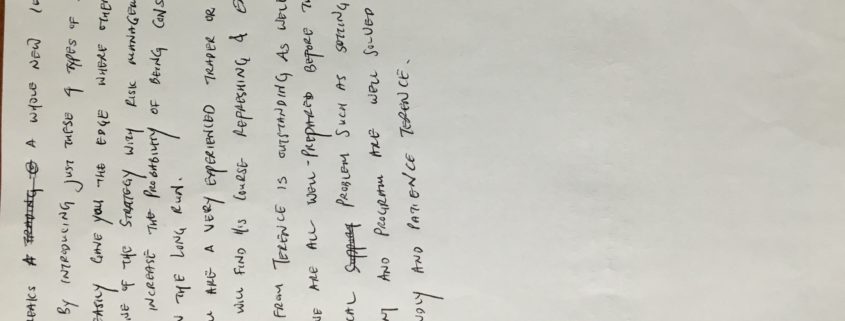 EAKS A TRADING @ A WHOLE NEW LE
BY INTRODUCING JUST THESE 4 TYPES OF
EASILY GAVE YOU THE EDGE WHERE OTHE
NE OF THE STRATEGY WITH RISK MANAGEM
INCREASE THE PROBABILITY OF BEING CONS
N THE LONG RUN.
U ARE A VERY EXPERIENCED TRADER OR
WILL FIND HIS COURSE REFRESHING & E
FROM TERENCE IS OUTSTANDING AS WELL
WE ARE ALL WELL-PREPARED BEFORE T
CAL PROBLEM SUCH AS SETTING
NT AND PROGRAM ARE WELL SOLVED
NDLY AND PATIENCE TERENCE.